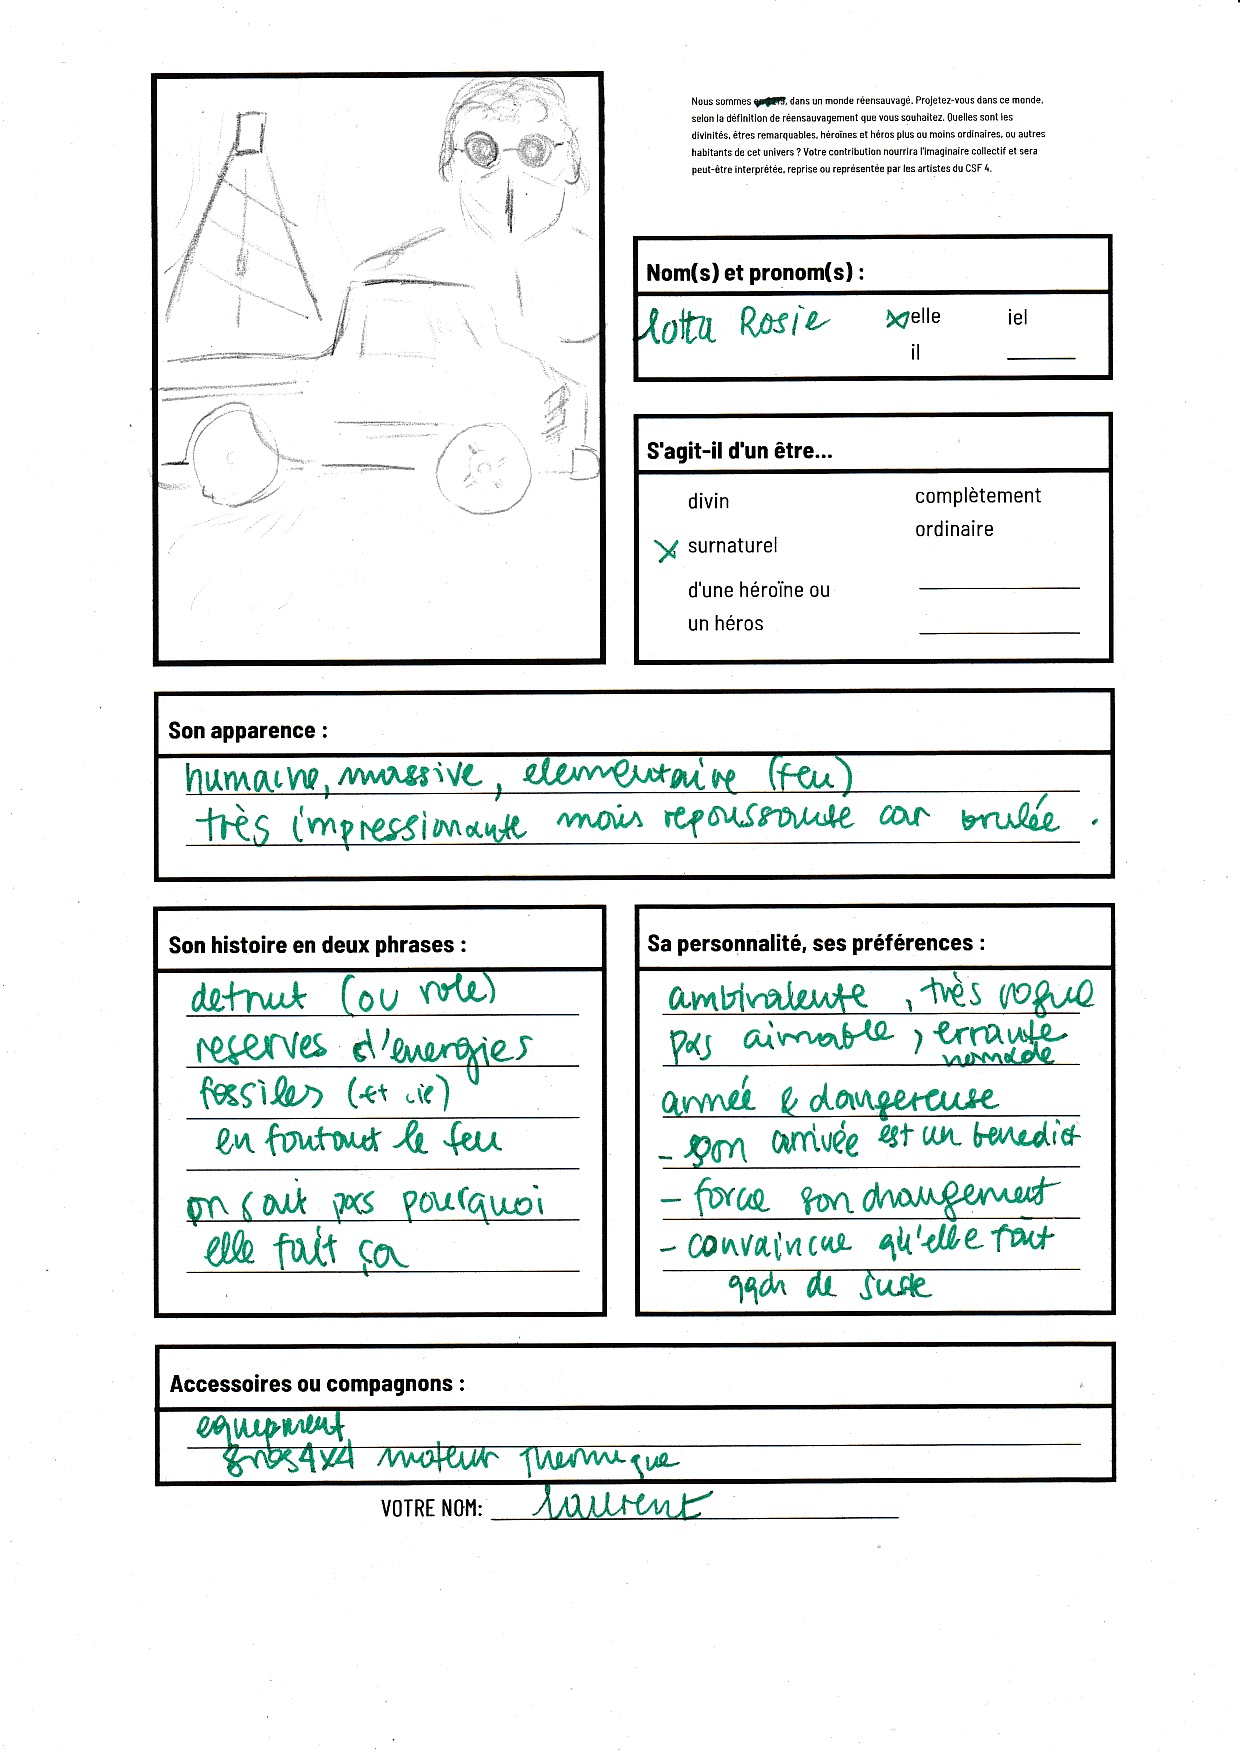 Nous sommes , dans un monde réensauvagé. Projetez-vous dans ce monde,
selon la définition de réensauvagement que vous souhaitez. Quelles sont les
divinités, êtres remarquables, héroïnes et héros plus ou moins ordinaires, ou autres
habitants de cet univers ? Votre contribution nourrira l'imaginaire collectif et sera
peut-être interprétée, reprise ou représentée par les artistes du CSF 4.
Nom(s) et pronom(s) :
Lotta Rosie
x elle
iel
il
S'agit-il d'un être...
divin
x surnaturel
d'une héroïne ou
un héros
complètement
ordinaire
Son apparence :
humaine, massive, elementaire (feu)
très impressionante mais repoussante car brulée.
Son histoire en deux phrases :
detruit (ou vole)
reserves d'energies
fossiles (et cie)
en foutant le feu
on sait pas pourquoi
elle fait ça
Sa personnalité, ses préférences :
ambivalente, très rogue
pas aimable, errante
nomade
armée & dangereuse
- son arrivée est un benedict
- force son changement
- convaincue qu'elle fait
qqch de juste
Accessoires ou compagnons :
equipment
gros 4x4 moteur thermique
VOTRE NOM: Laurent